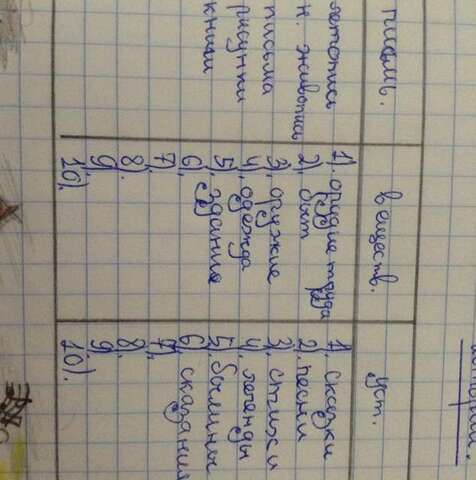 письм.
летопись
н. живопись
письма
рисунки
книги
веществ.
1). орудие труда
2). быт
3). оружие
4). одежда
5). здание
6).
7).
8).
9).
10).
уст.
1). сказки
2). песни
3). стихи
4). легенды
5). былины
6). сказания
7).
8).
9).
10).